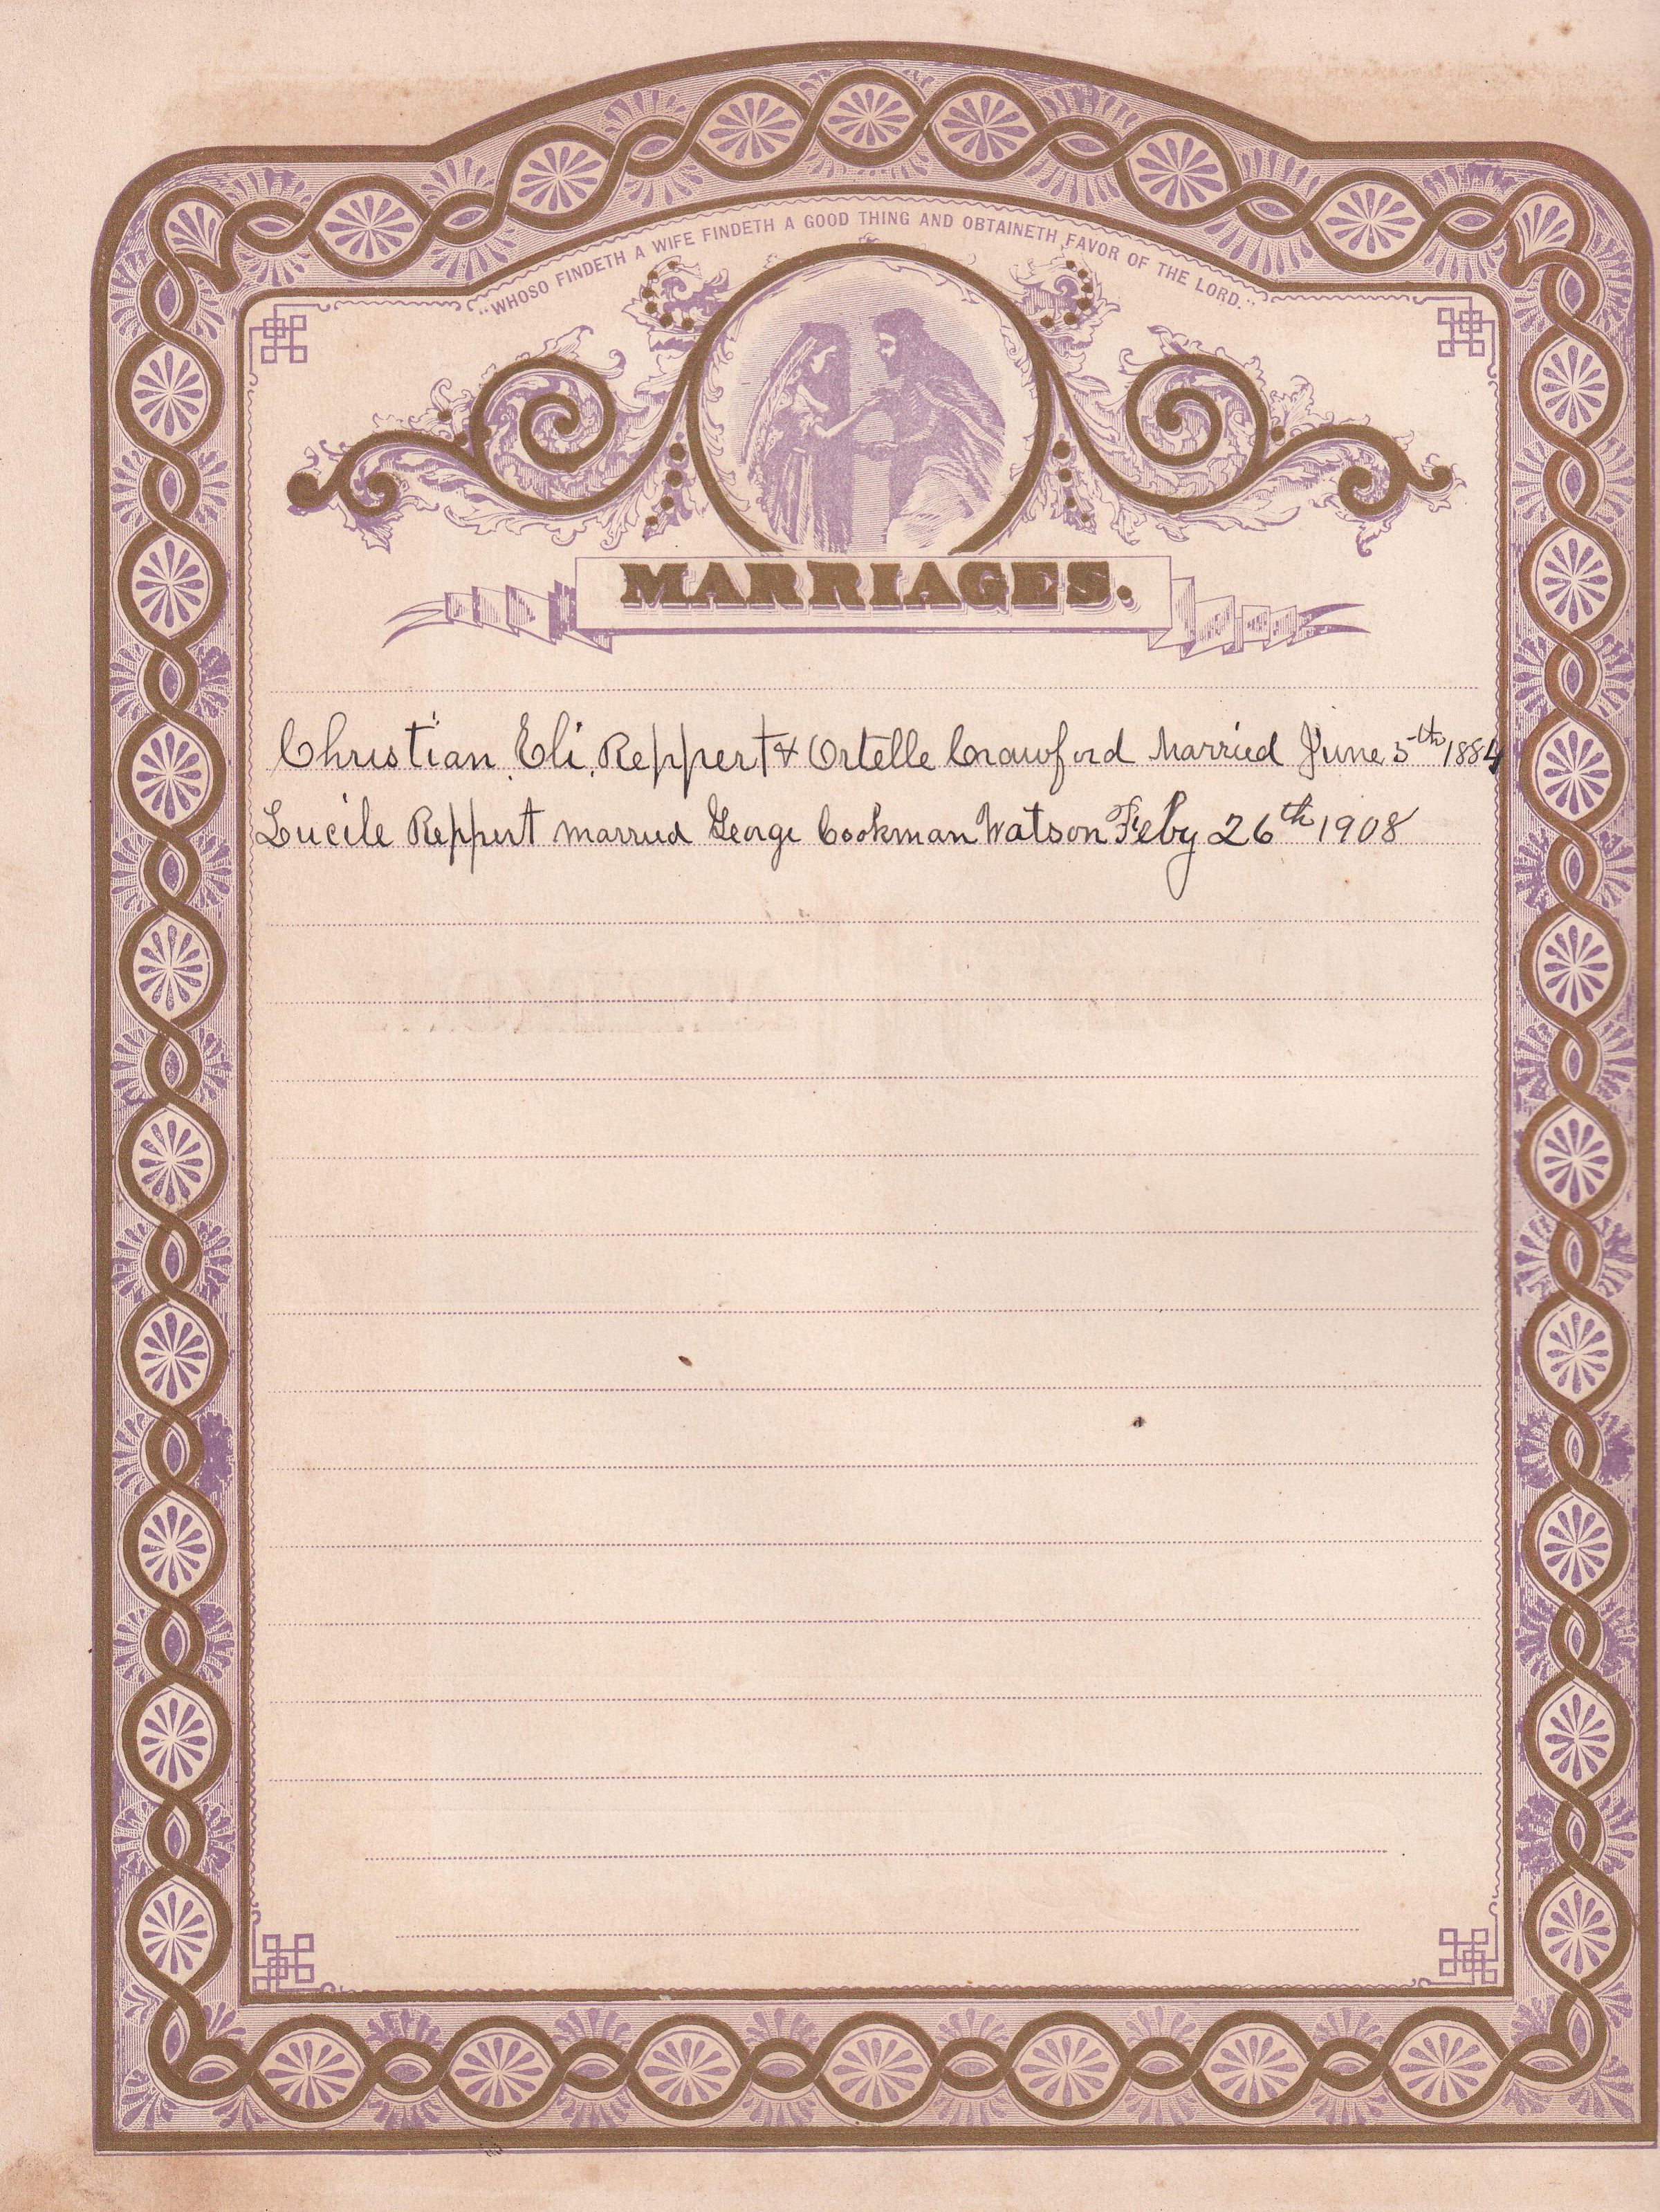 "WHOSO FINDETH A WIFE FINDETH A GOOD THING AND OBTAINETH FAVOR OF THE LORD."
MARRIAGES.
Christian Eli Reppert & Ortelle Crawford Married June 5th 1884
Lucile Reppert married George Cookman Watson Feby 26th 1908